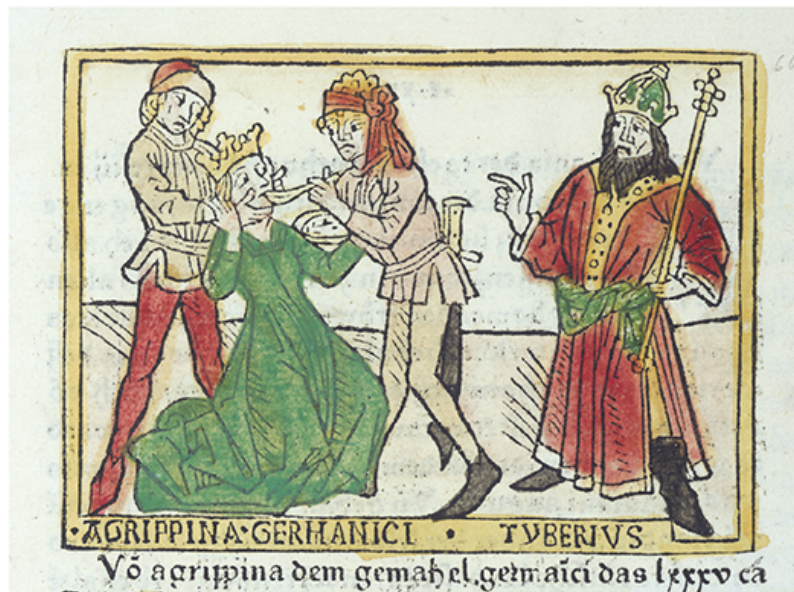 ·AGRIPPINA·GERMANICI · TYBERIVS
Vō agrippina dem gemahel.germaīci das lxxxv ca